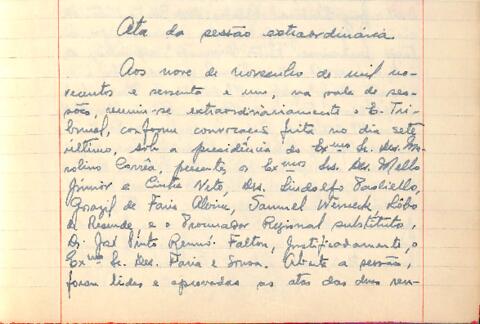 Ata da sessão extraordinária
Aos nove de novembro de mil no-
vecentos e sessenta e um, na sala de ses-
sões, reuniu-se extraordinariamente o E. Tri-
bunal, conforme convocação feita no dia sete
último, sob a presidência do Exmo Sr. Des. Mar-
colino Corrêa, presentes os Exmos Srs. Des. Mello
Júnior e Cintra Neto, Drs. Lindolfo Paoliello,
de Faria Alvim, Samuel Werneck, Lôbo
de Resende, e o Procurador Regional substituto,
Dr. José Pinto Rennó. Faltou, justificadamente, o
Exmo Sr. Des. Faria e Sousa. Aberta a sessão,
foram lidas e aprovadas as atas das duas reu-